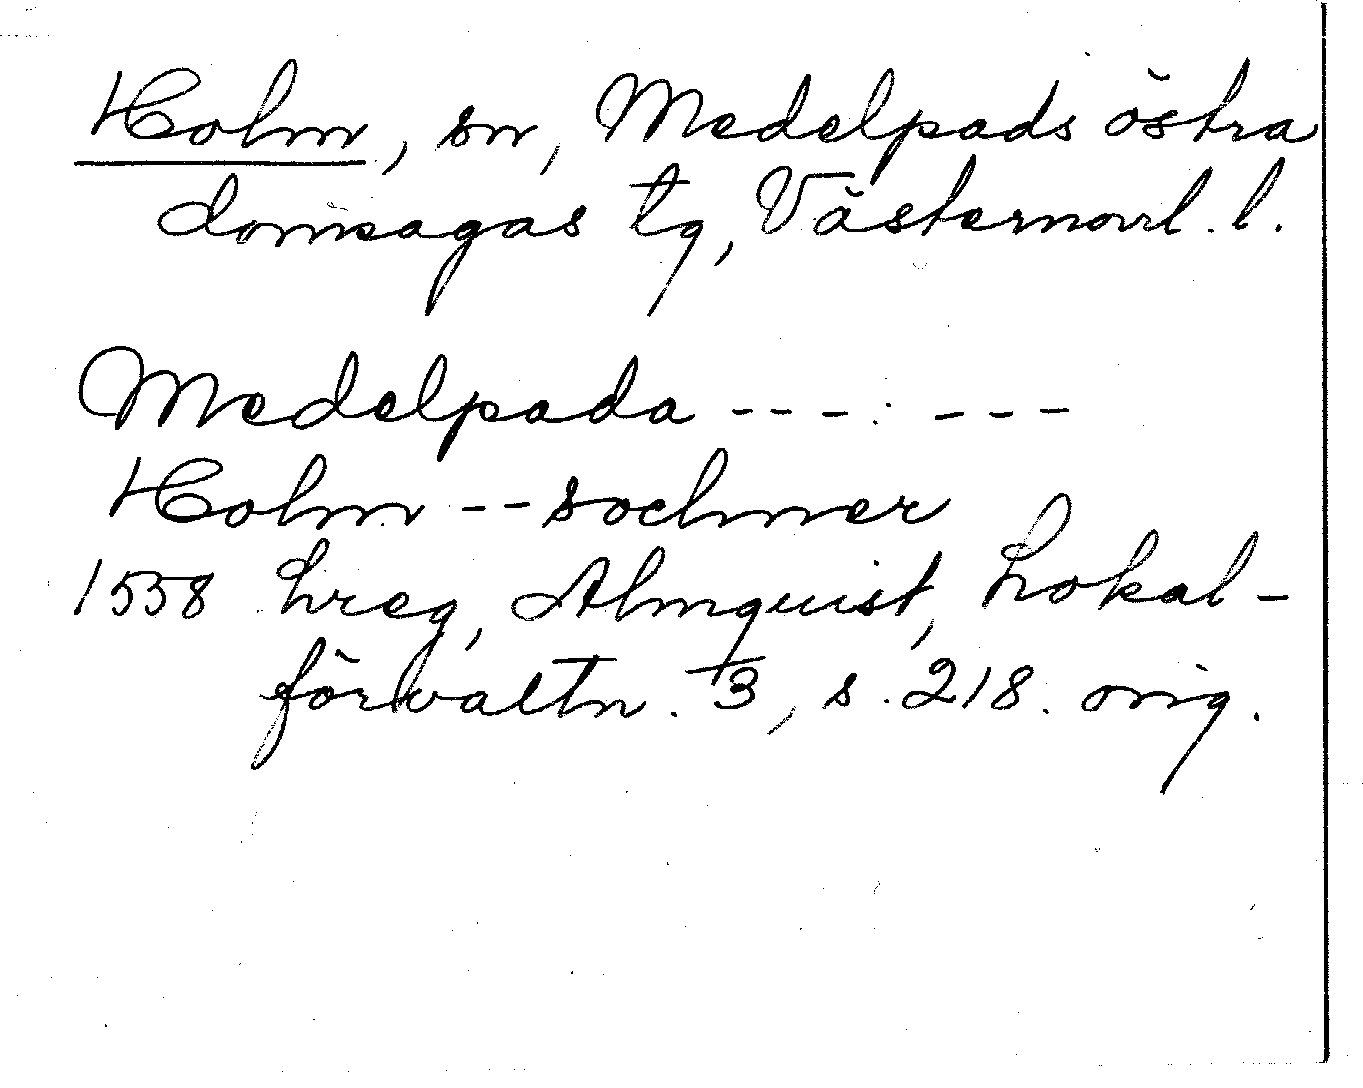 Holm, sn, Medelpads östra
domsagas tg, Västernorrl. l.
Medelpada --- . ---
Holm -- sochner
1558 hreg, Almquist, Lokal-
förvaltn. 3, s. 218. orig.